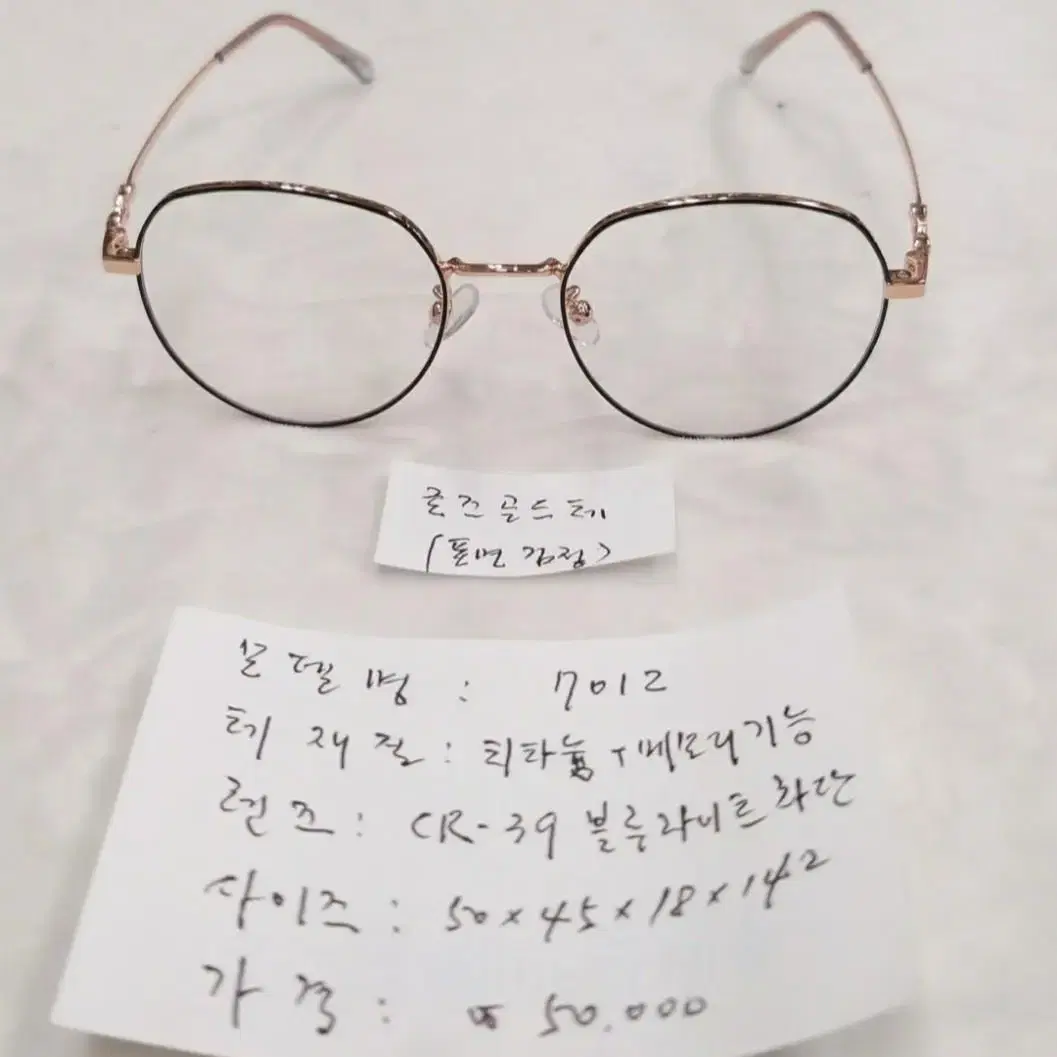 로즈골드테
(표면 검정)
모델명 : 7012
테 재질 : 티타늄 + 메모리기능
렌즈 : CR-39 블루라이트 차단
사이즈 : 50×45×18×142
가격 : ₩ 50.000